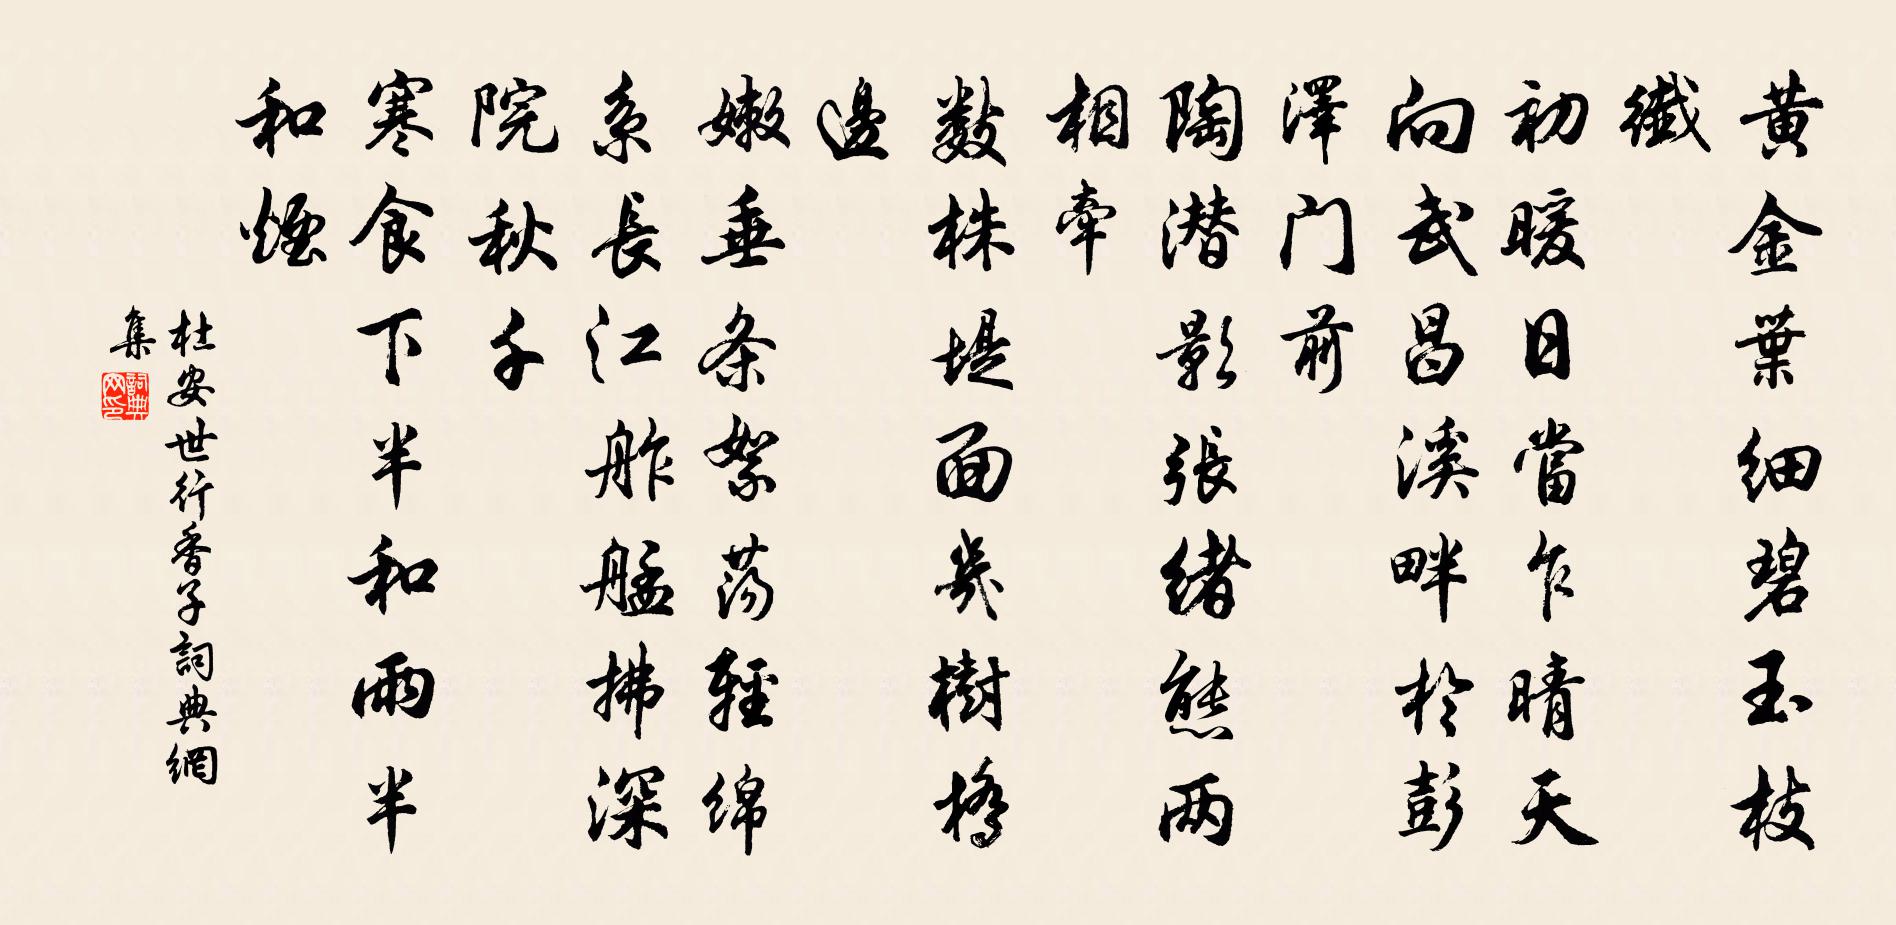 黄金葉细碧玉枝
纖
初暖日當乍晴天
向武昌溪畔於彭
澤门前
陶潜影張緒態两
相牽
数株堤面幾樹橋
邊
嫩垂条絮荡輕绵
系長江舴艋拂深
院秋千
寒食下半和雨半
和煙
杜安世行香子詞典網
集
詞典网印